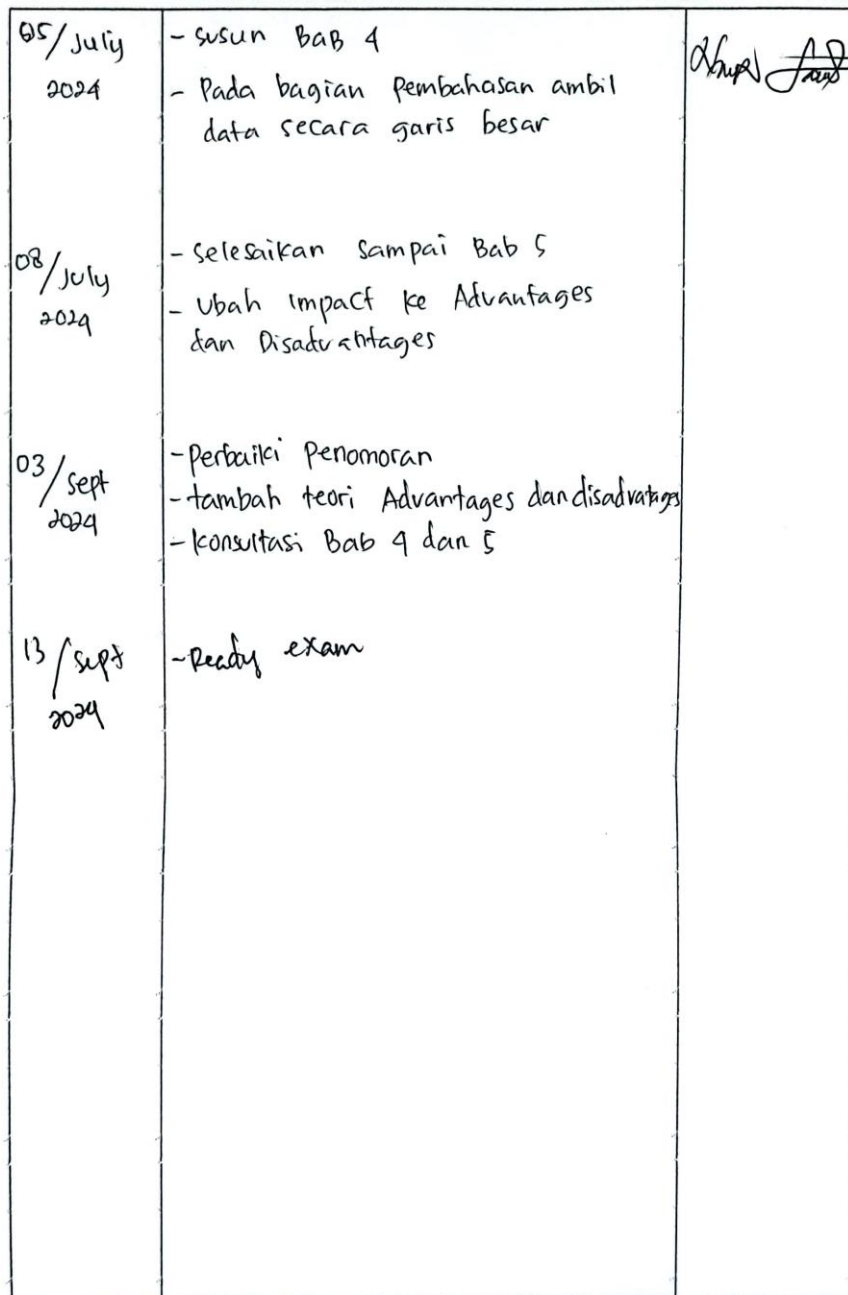 05/July
2024
- Susun BaB 4
- Pada bagian Pembahasan ambil
data secara garis besar
08/July
2024
- Selesaikan Sampai Bab 5
- Ubah Impact ke Advantages
dan Disadvantages
03/Sept
2024
- Perbaiki Penomoran
- tambah teori Advantages dan disadvatages
- Konsultasi Bab 4 dan 5
13/Sept
2024
- Ready exam